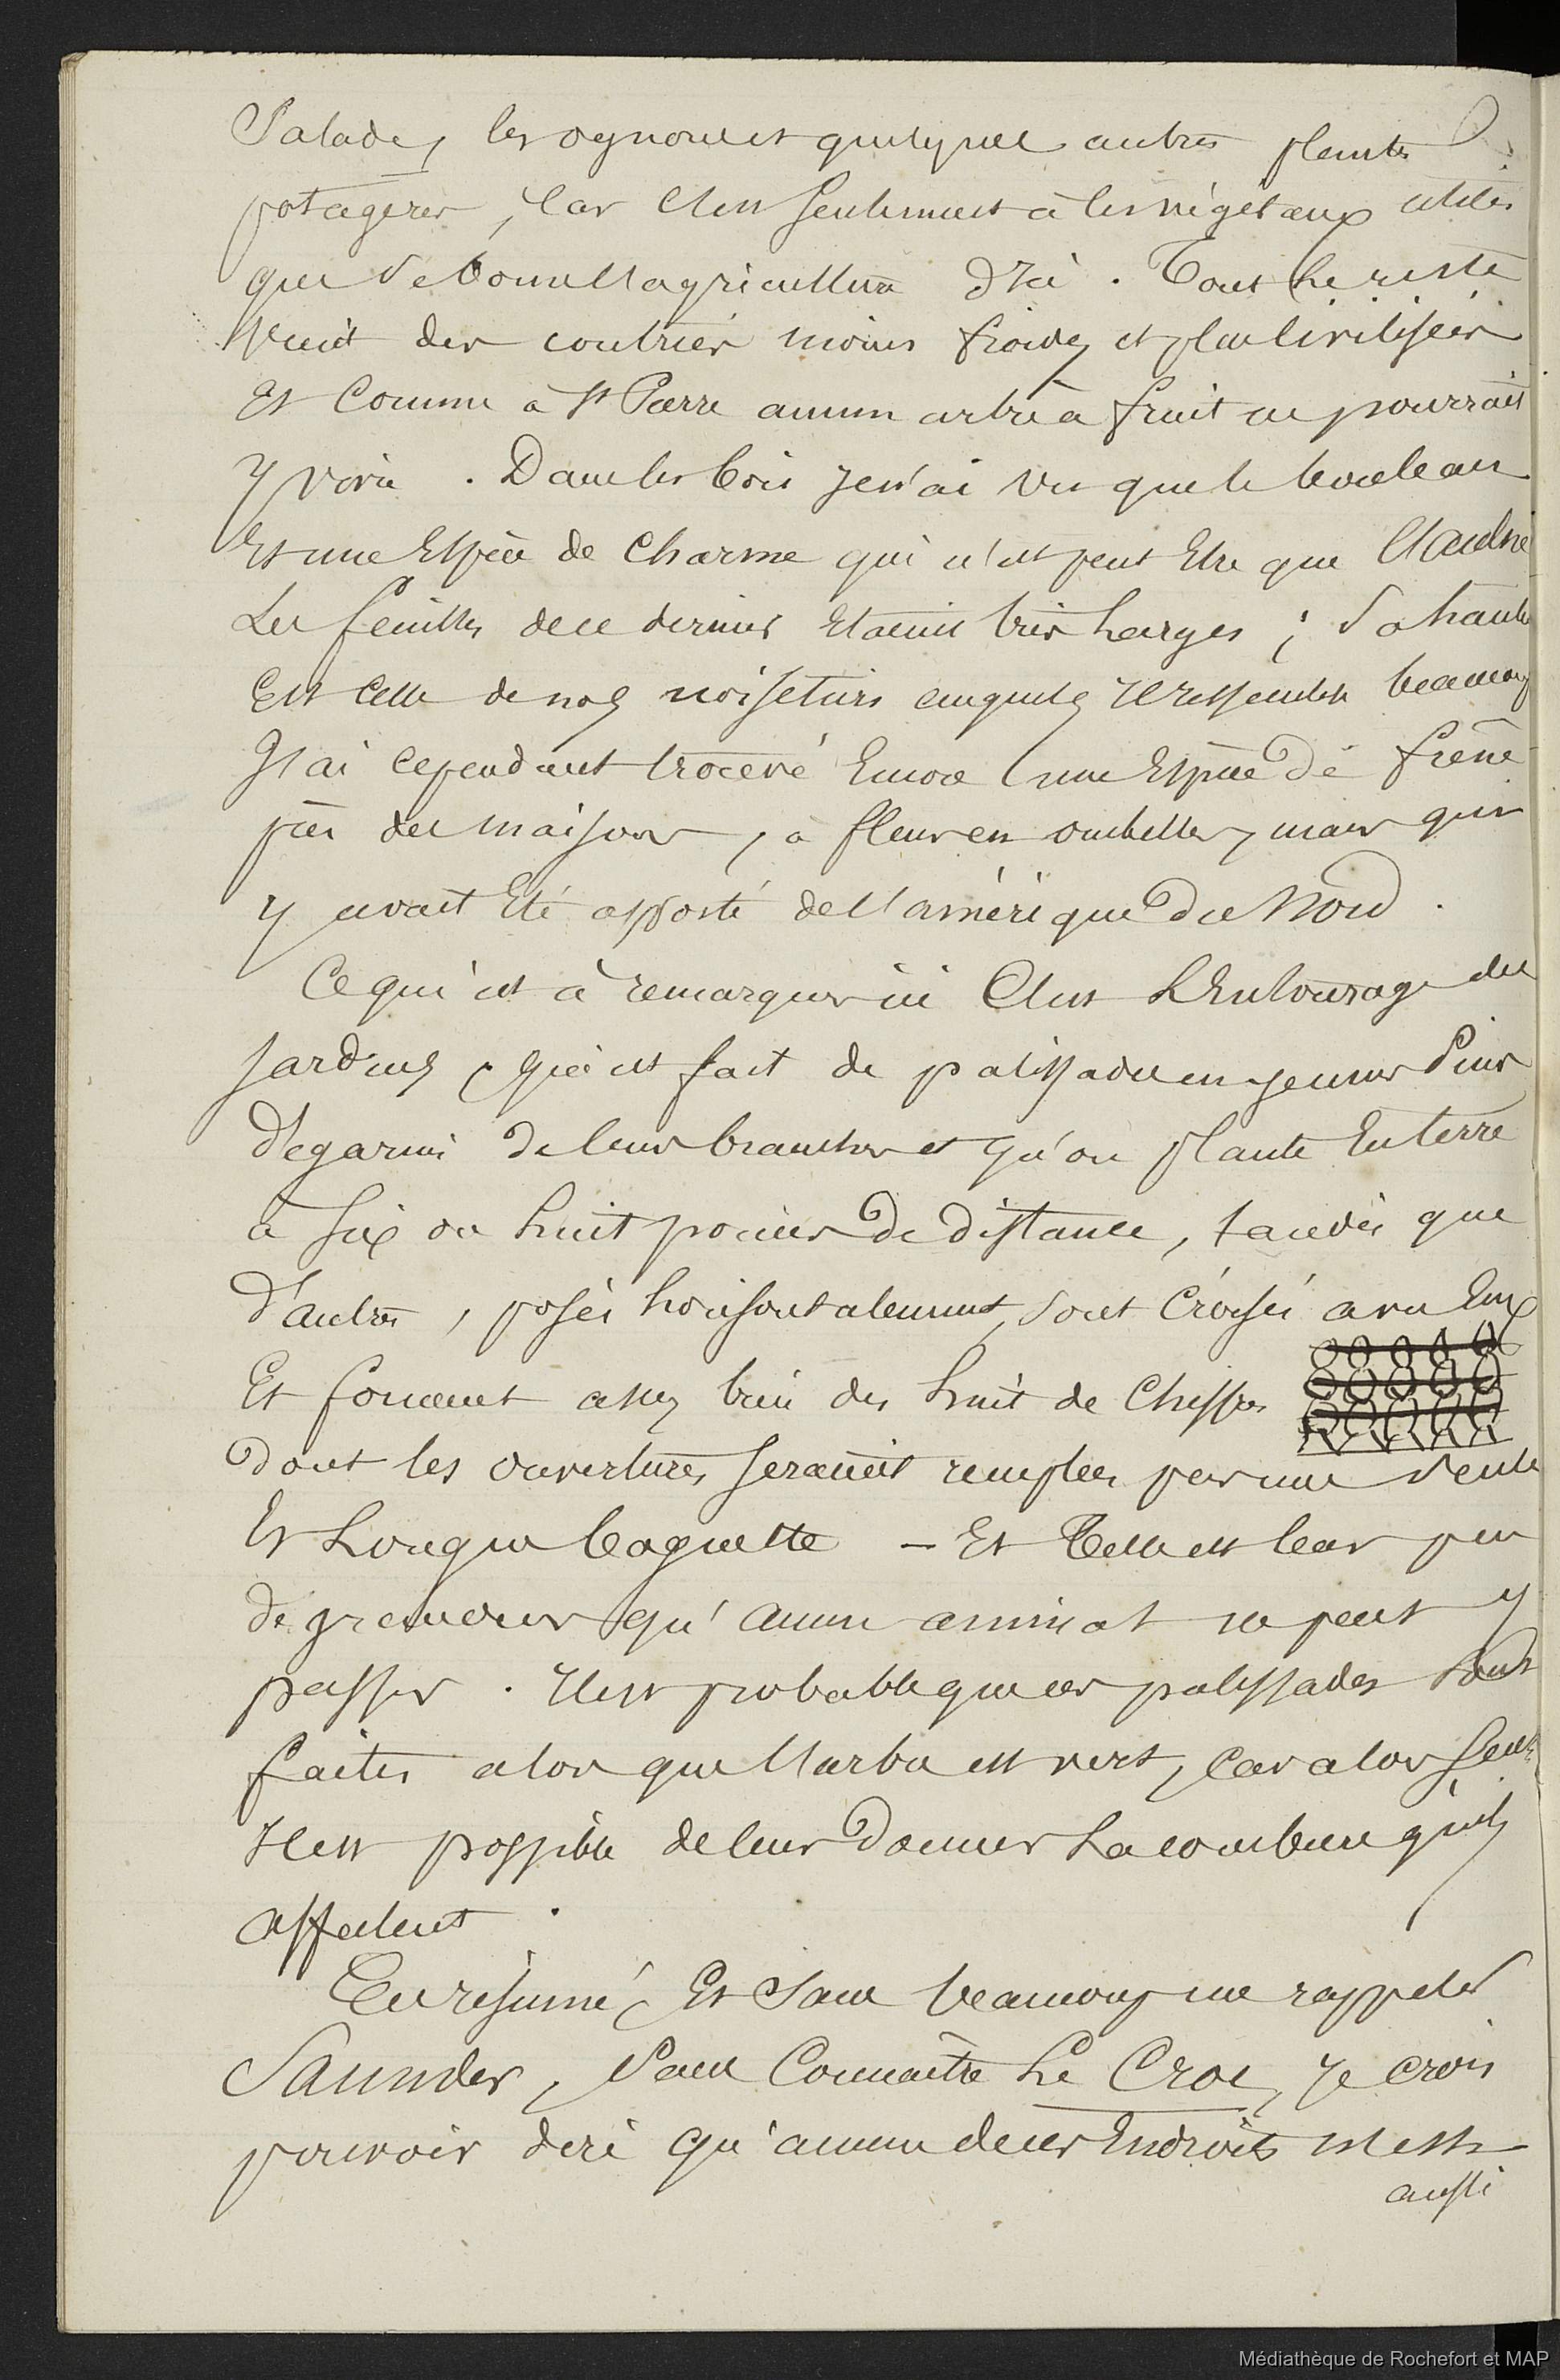 Salades, les ognons et quelques autres plantes
potagères, car c'est seulement à les végétaux utiles
que se borne l'agriculture d'ici. Tout le reste
vient des contrées moins froides et plus civilisées
Et Comme à St Pierre aucun arbre à fruit ne pourrait
y vivre. Dans les bois je n'ai vu que le bouleau
Et une Espèce de Charme qui n'est peut Etre que l'Aulne
Les feuilles de ce dernier Etaient très Larges; Sa hauteur
Est Celle de nos noisetiers auxquels il ressemble beaucoup
J'ai cependant trouvé Encore une Espèce de frêne
près des maisons, à fleurs en ombelles, mais qui
y avait Eté apporté de l'amérique du Nord.
Ce qui est à remarquer ici C'est L'Entourage des
Jardins, qui est fait de palissades en jeunes Pins
dégarnis de leurs branches et qu'on plante En terre
à six ou huit pouces de distance, tandis que
d'autres, posés horisontalement, sont Croisés avec Eux
Et forment assez bien des huit de Chiffres
dont les ouvertures seraient remplies par une seule
Et Longue baguette – Et Telle est leur peu
de grandeur qu'aucun animal ne peut y
passer. Il est probable que ces palissades sont
faites alors que l'arbre est vert, Car alors seul
Il est possible de leur donner La courbure qu'ils
affectent.
En résumé, Et sans beaucoup me rappeler
Saunders, sans Connaître Le Croc, Je crois
pouvoir dire qu'aucun de ces Endroits n'est
aussi
Médiathèque de Rochefort et MAP